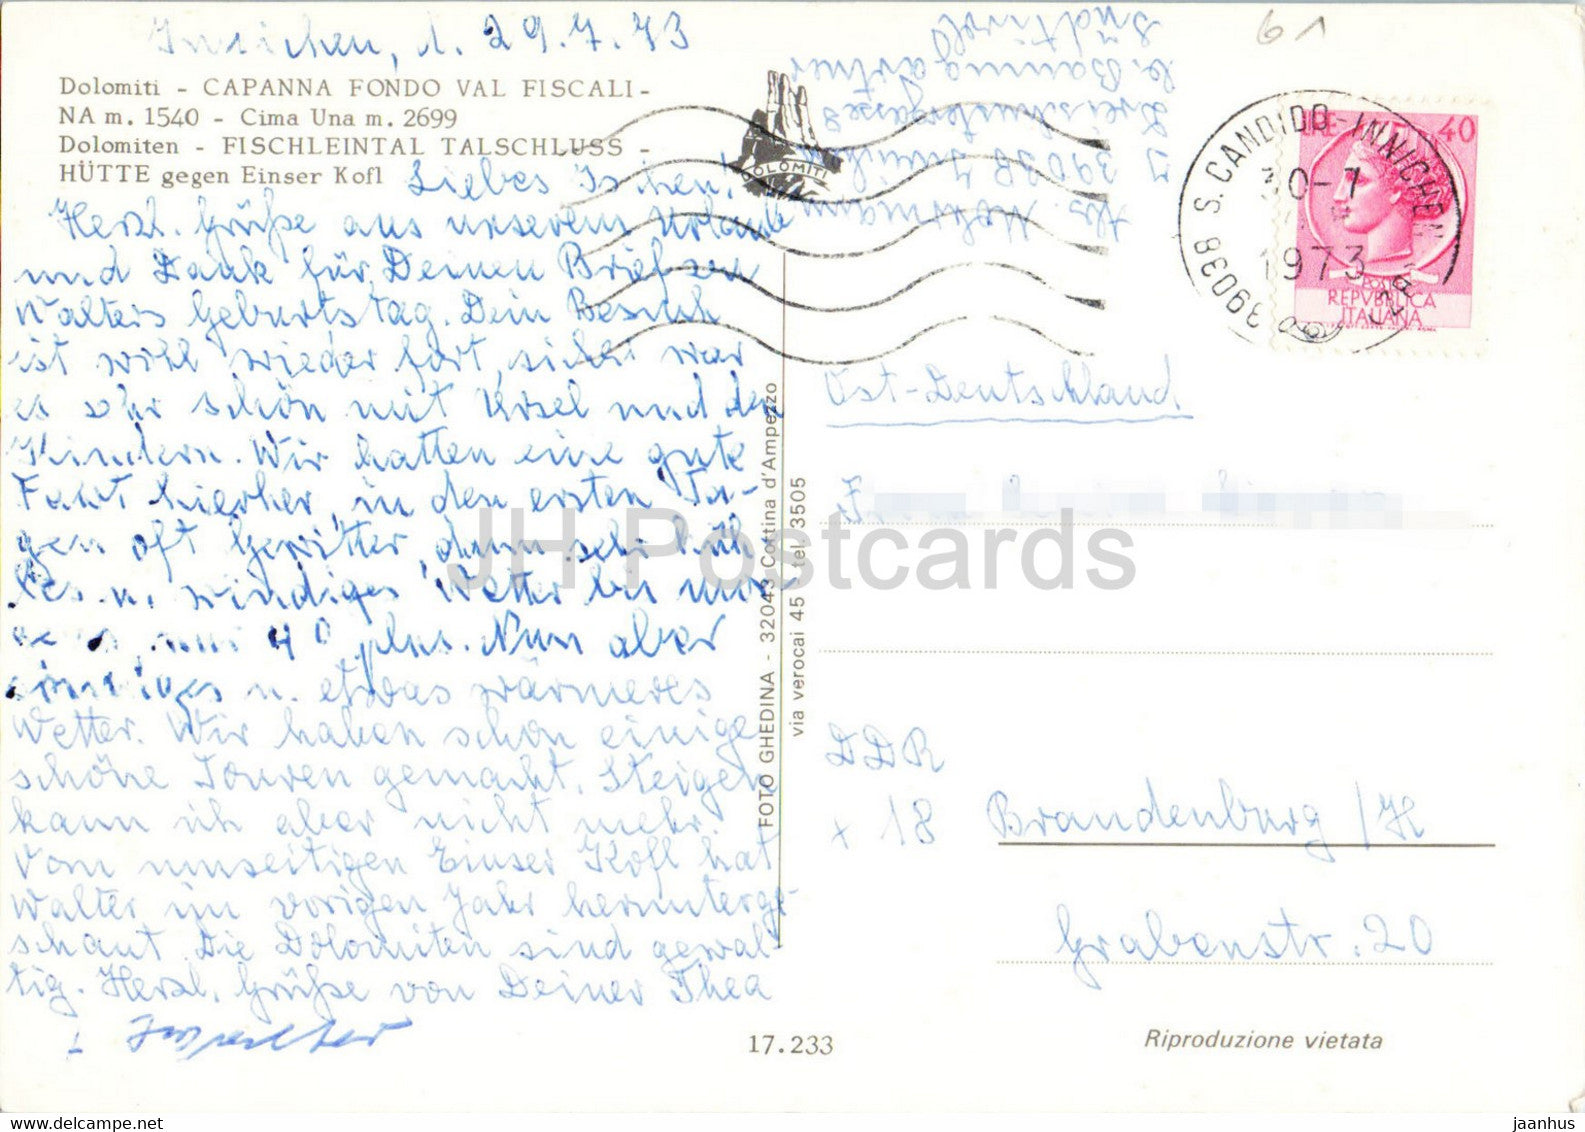 Innichen, d. 29.7.73
61
Dolomiti - CAPANNA FONDO VAL FISCALI-
NA m. 1540 - Cima Una m. 2699
Dolomiten - FISCHLEINTAL TALSCHLUSS -
HÜTTE gegen Einser Kofl
Liebes
Herzl. Grüße aus unserem Urlaub
und Dank für Deinen Brief zu
Walters Geburtstag. Dein Besuch
ist wohl wieder fort, sicher war
es sehr schön mit Ursel und den
Kindern. Wir hatten eine gute
Fahrt hierher, in den ersten Ta-
gen oft Gewitter, dann sehr küh-
les u. windiges Wetter bei mor-
gens nur 4° plus. Nun aber
u. etwas wärmeres
Wetter. Wir haben schon einige
schöne Touren gemacht. Steigen
kann ich aber nicht mehr.
Vom umseitigen Einser Kofl hat
Walter im vorigen Jahr herunterge-
schaut. Die Dolomiten sind gewal-
tig. Herzl. Grüße von Deiner Thea
+ Walter
Abs.
I 39038 Innichen
b. Baumgartner
Südtirol
DOLOMITI
39038 S. CANDIDO-INNICHEN
30-7
1973
LIRE 40
POSTE
REPVBBLICA
ITALIANA
Ost-Deutschland
DDR
x 18 Brandenburg /H
Grabenstr. 20
FOTO GHEDINA - 32043 Cottina d'Ampezzo
via verocai 45 - tel. 3505
17.233
Riproduzione vietata
JH Postcards
jaanhus © delcampe.net